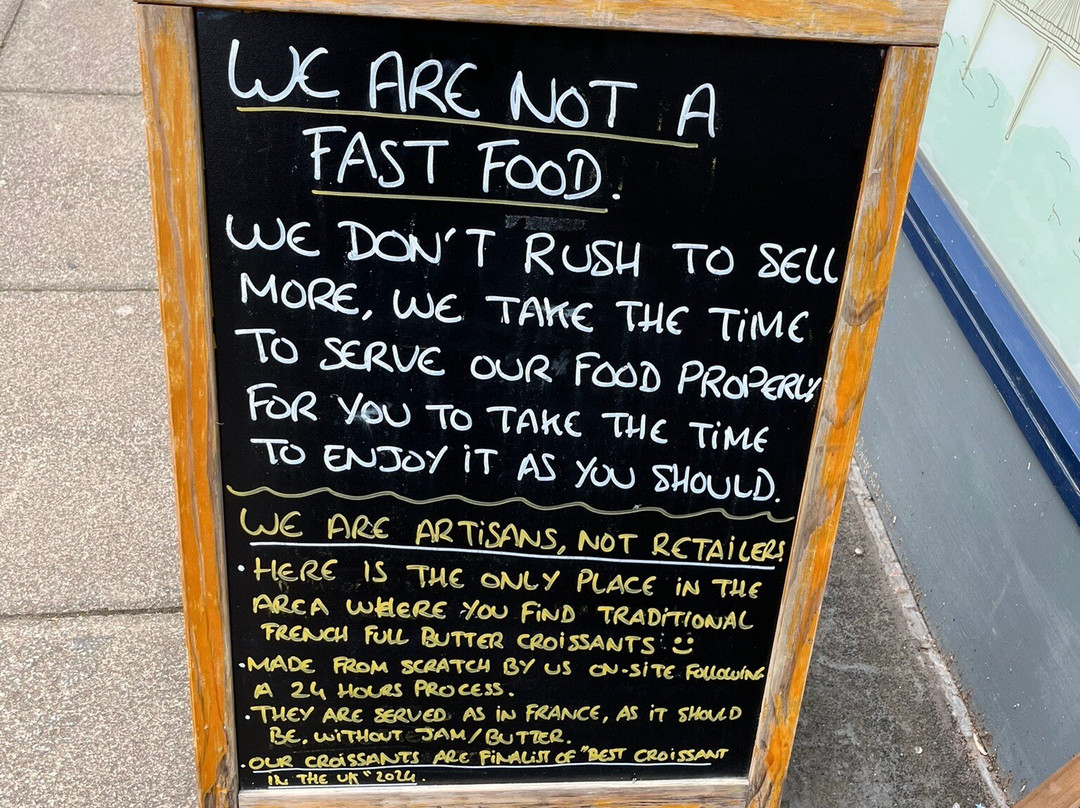 WE ARE NOT A
FAST FOOD.
WE DON'T RUSH TO SELL
MORE, WE TAKE THE TIME
TO SERVE OUR FOOD PROPERLY
FOR YOU TO TAKE THE TIME
TO ENJOY IT AS YOU SHOULD.
WE ARE ARTISANS, NOT RETAILERS
• HERE IS THE ONLY PLACE IN THE
AREA WHERE YOU FIND TRADITIONAL
FRENCH FULL BUTTER CROISSANTS :)
• MADE FROM SCRATCH BY US ON-SITE FOLLOWING
A 24 HOURS PROCESS.
• THEY ARE SERVED AS IN FRANCE, AS IT SHOULD
BE, WITHOUT JAM/BUTTER.
• OUR CROISSANTS ARE FINALIST OF "BEST CROISSANT
IN THE UK" 2024.